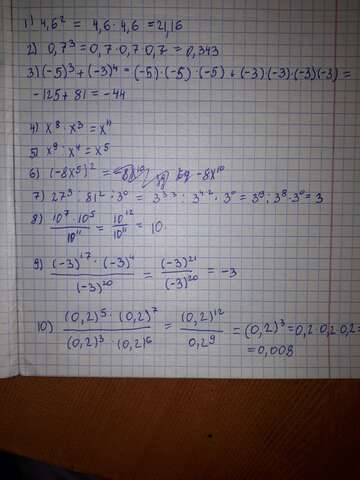 1) 4,6² = 4,6 · 4,6 = 21,16
2) 0,7³ = 0,7 · 0,7 · 0,7 = 0,343
3) (-5)³ + (-3)⁴ = (-5) · (-5) · (-5) + (-3)(-3)·(-3)(-3) =
-125 + 81 = -44
4) x⁸ · x³ = x¹¹
5) x⁹ : x⁴ = x⁵
6) (-8x⁵)² = -8x¹⁰
7) 27³ : 81² · 3⁰ = 3³·³ : 3⁴·² · 3⁰ = 3⁹ : 3⁸ · 3⁰ = 3
8) 10⁷ · 10⁵ / 10¹¹ = 10¹² / 10¹¹ = 10
9) (-3)¹⁷ · (-3)⁴ / (-3)²⁰ = (-3)²¹ / (-3)²⁰ = -3
10) (0,2)⁵ · (0,2)⁷ / (0,2)³ · (0,2)⁶ = (0,2)¹² / 0,2⁹ = (0,2)³ = 0,2 · 0,2 · 0,2 =
= 0,008